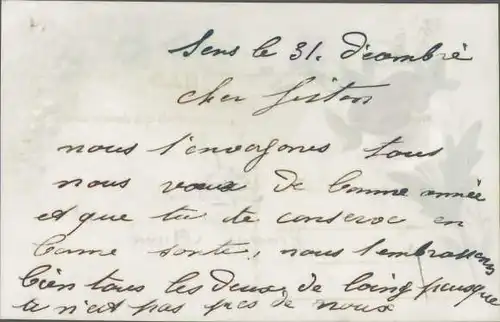 Sens le 31. décembre
cher Fiston
nous t'envoyons tous
nous voeux de bonne année
et que tu te conserve en
bonne sante, nous t'embrassons
bien tous les deux de loing puisque
tu n'est pas près de nous